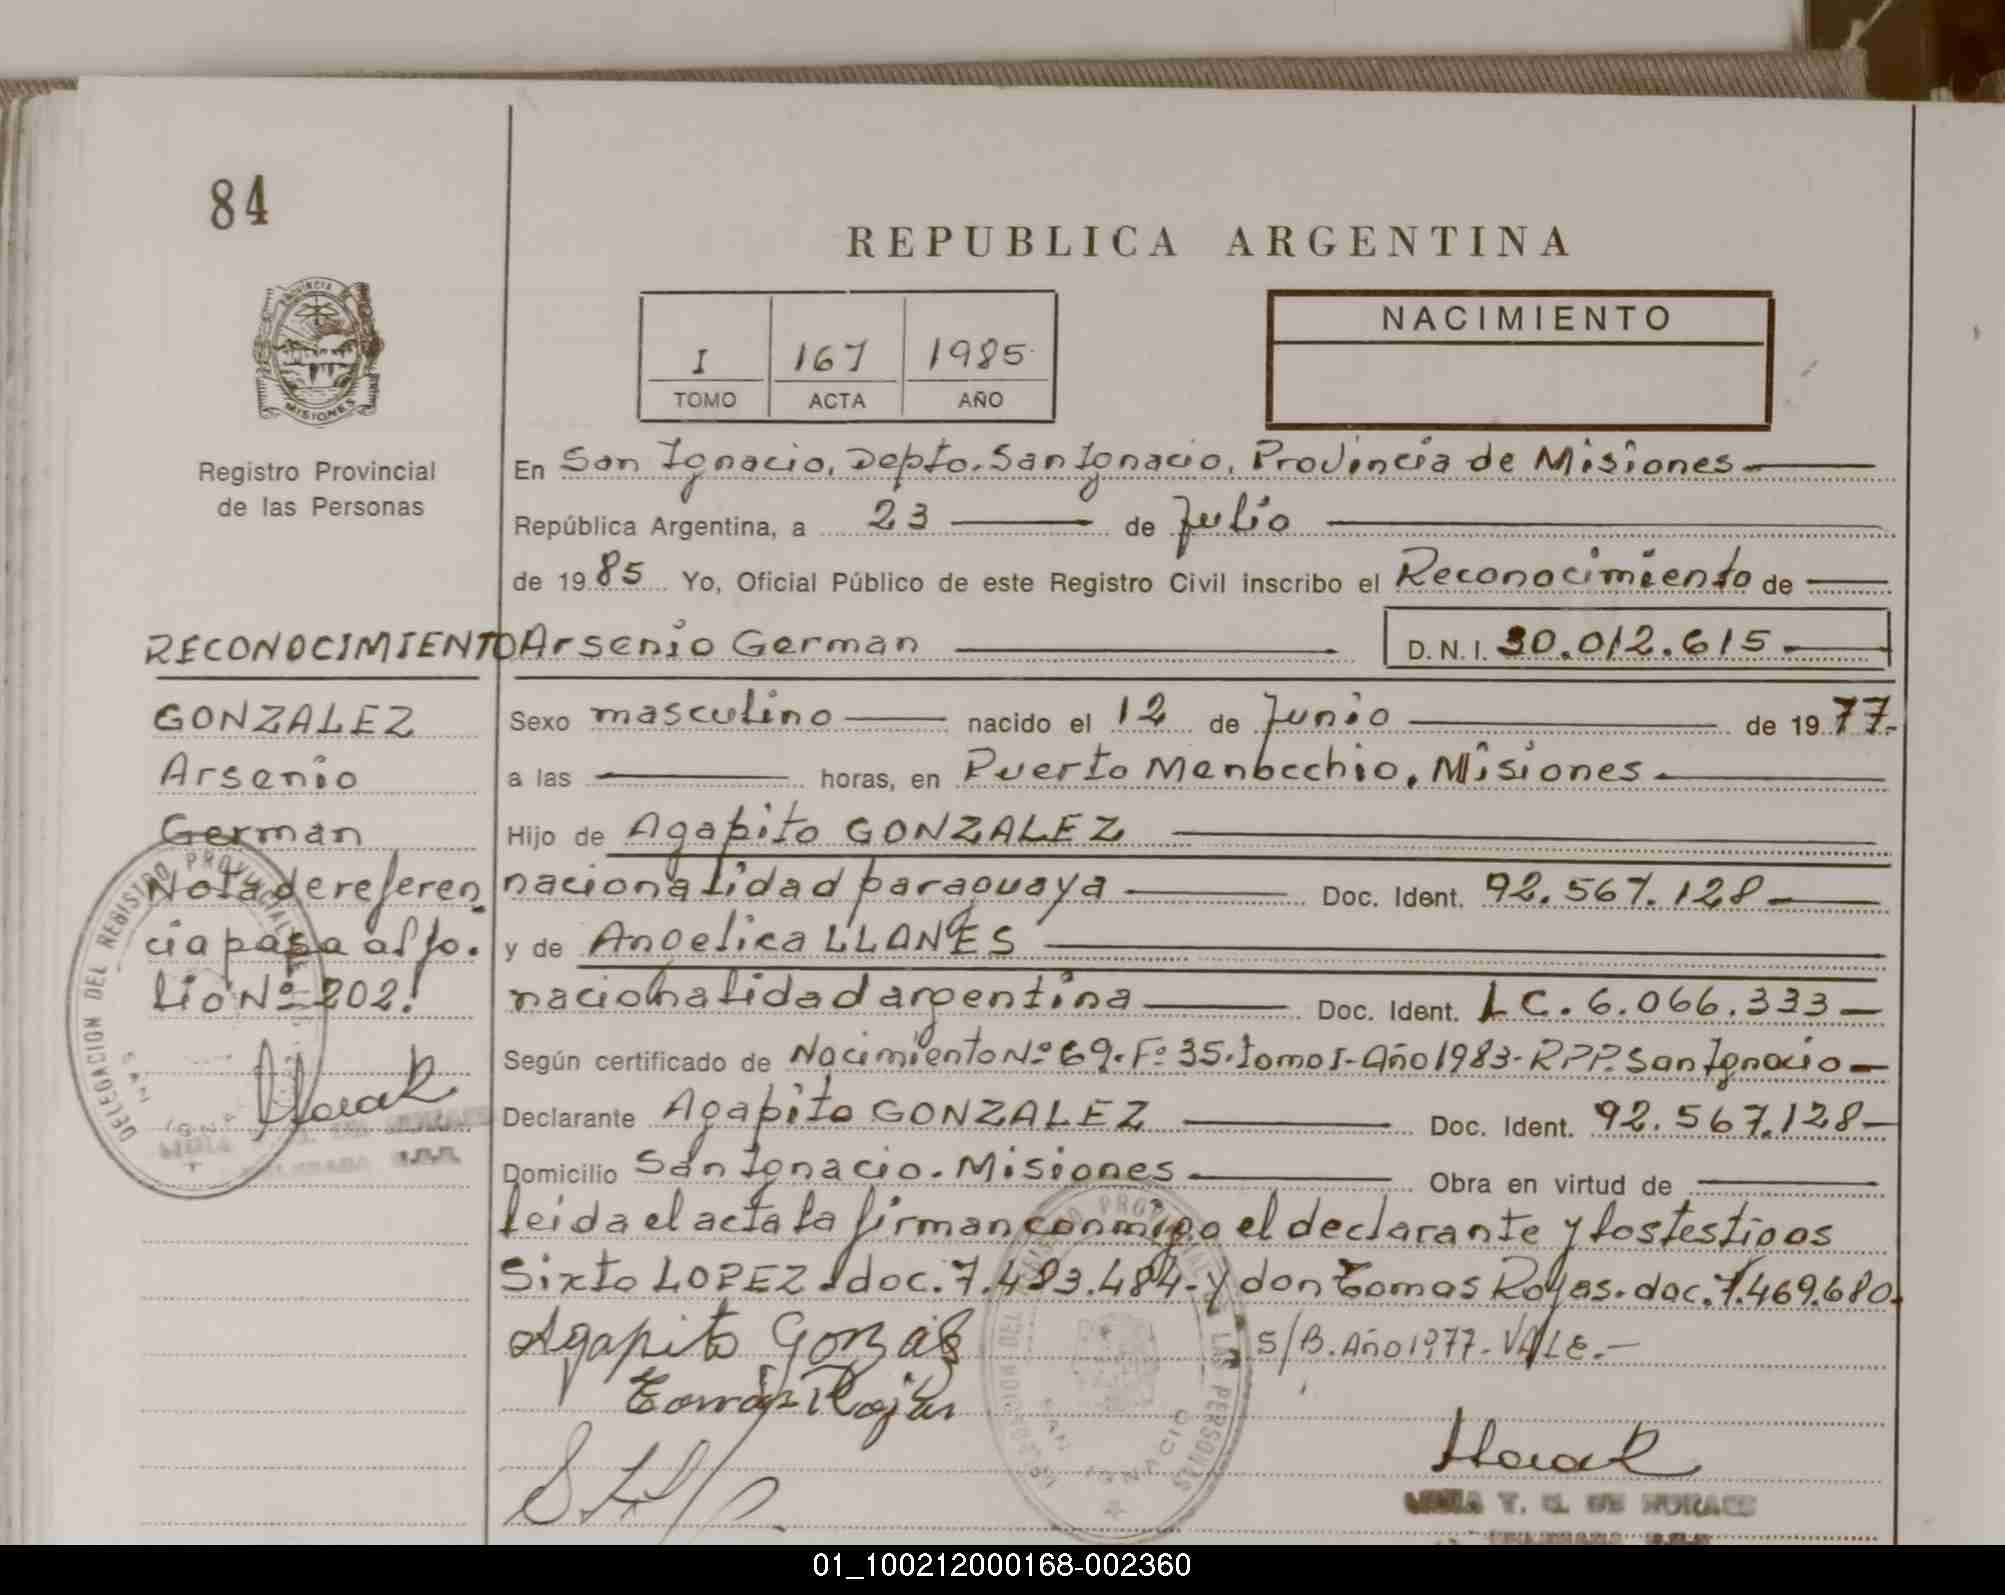 84
REPUBLICA ARGENTINA
PROVINCIA DE
MISIONES
NACIMIENTO
I 167 1985
TOMO ACTA AÑO
Registro Provincial
de las Personas
En San Ignacio, Depto. San Ignacio, Provincia de Misiones
República Argentina, a 23 de Julio
de 1985 Yo, Oficial Público de este Registro Civil inscribo el Reconocimiento de
Arsenio German D.N.I. 30.012.615
Sexo masculino nacido el 12 de Junio de 1977.
a las horas, en Puerto Menocchio, Misiones
Hijo de Agapito GONZALEZ
nacionalidad paraguaya Doc. Ident. 92.567.128
y de Angelica LLANES
nacionalidad argentina Doc. Ident. LC. 6.066.333
Según certificado de Nacimiento Nº 69. Fº 35. Tomo I - Año 1983 - RPP. San Ignacio
Declarante Agapito GONZALEZ Doc. Ident. 92.567.128
Domicilio San Ignacio. Misiones Obra en virtud de
leida el acta la firman conmigo el declarante y los testigos
Sixto LOPEZ doc. 7.483.484 - y don Tomas Rojas. doc. 7.469.680.
S/B. Año 1977. VALE.
Agapito Gonzalez
Tomas Rojas
RECONOCIMIENTO
GONZALEZ
Arsenio
German
Nota de referen
cia pasa al fo.
lio Nº 202.
DELEGACION DEL REGISTRO PROVINCIAL
SAN IGNACIO
DELEGACION DEL REGISTRO PROVINCIAL DE LAS PERSONAS
SAN IGNACIO
01_100212000168-002360